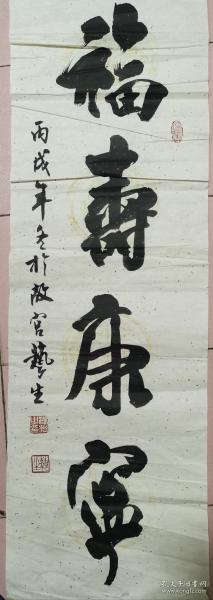 福壽康寧
丙戌年冬於故宮藝生